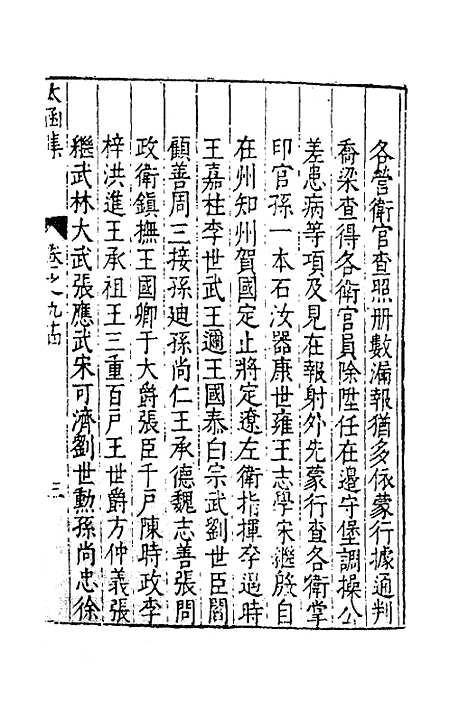 各營衛官查照册數漏報猶多依蒙行據通判
喬梁查得各衛官員除陞任在邊守堡調操公
差患病等項及見在報射外先蒙行查各衛掌
印官孫一本石汝器康世雍王志學宋繼殷自
在州知州賀國定止將定遼左衛指揮李遇時
王嘉柱李世武王邇王國泰白宗武劉世臣閻
顧善周三接孫迪孫尚仁王承德魏志善張問
政衛鎮撫王國卿于大爵張臣千戶陳時政李
梓洪進王承祖王三重百戶王世爵方仲義張
繼武林大武張應武宋可濟劉世勲孫尚忠徐
太函集
卷之九十四
三